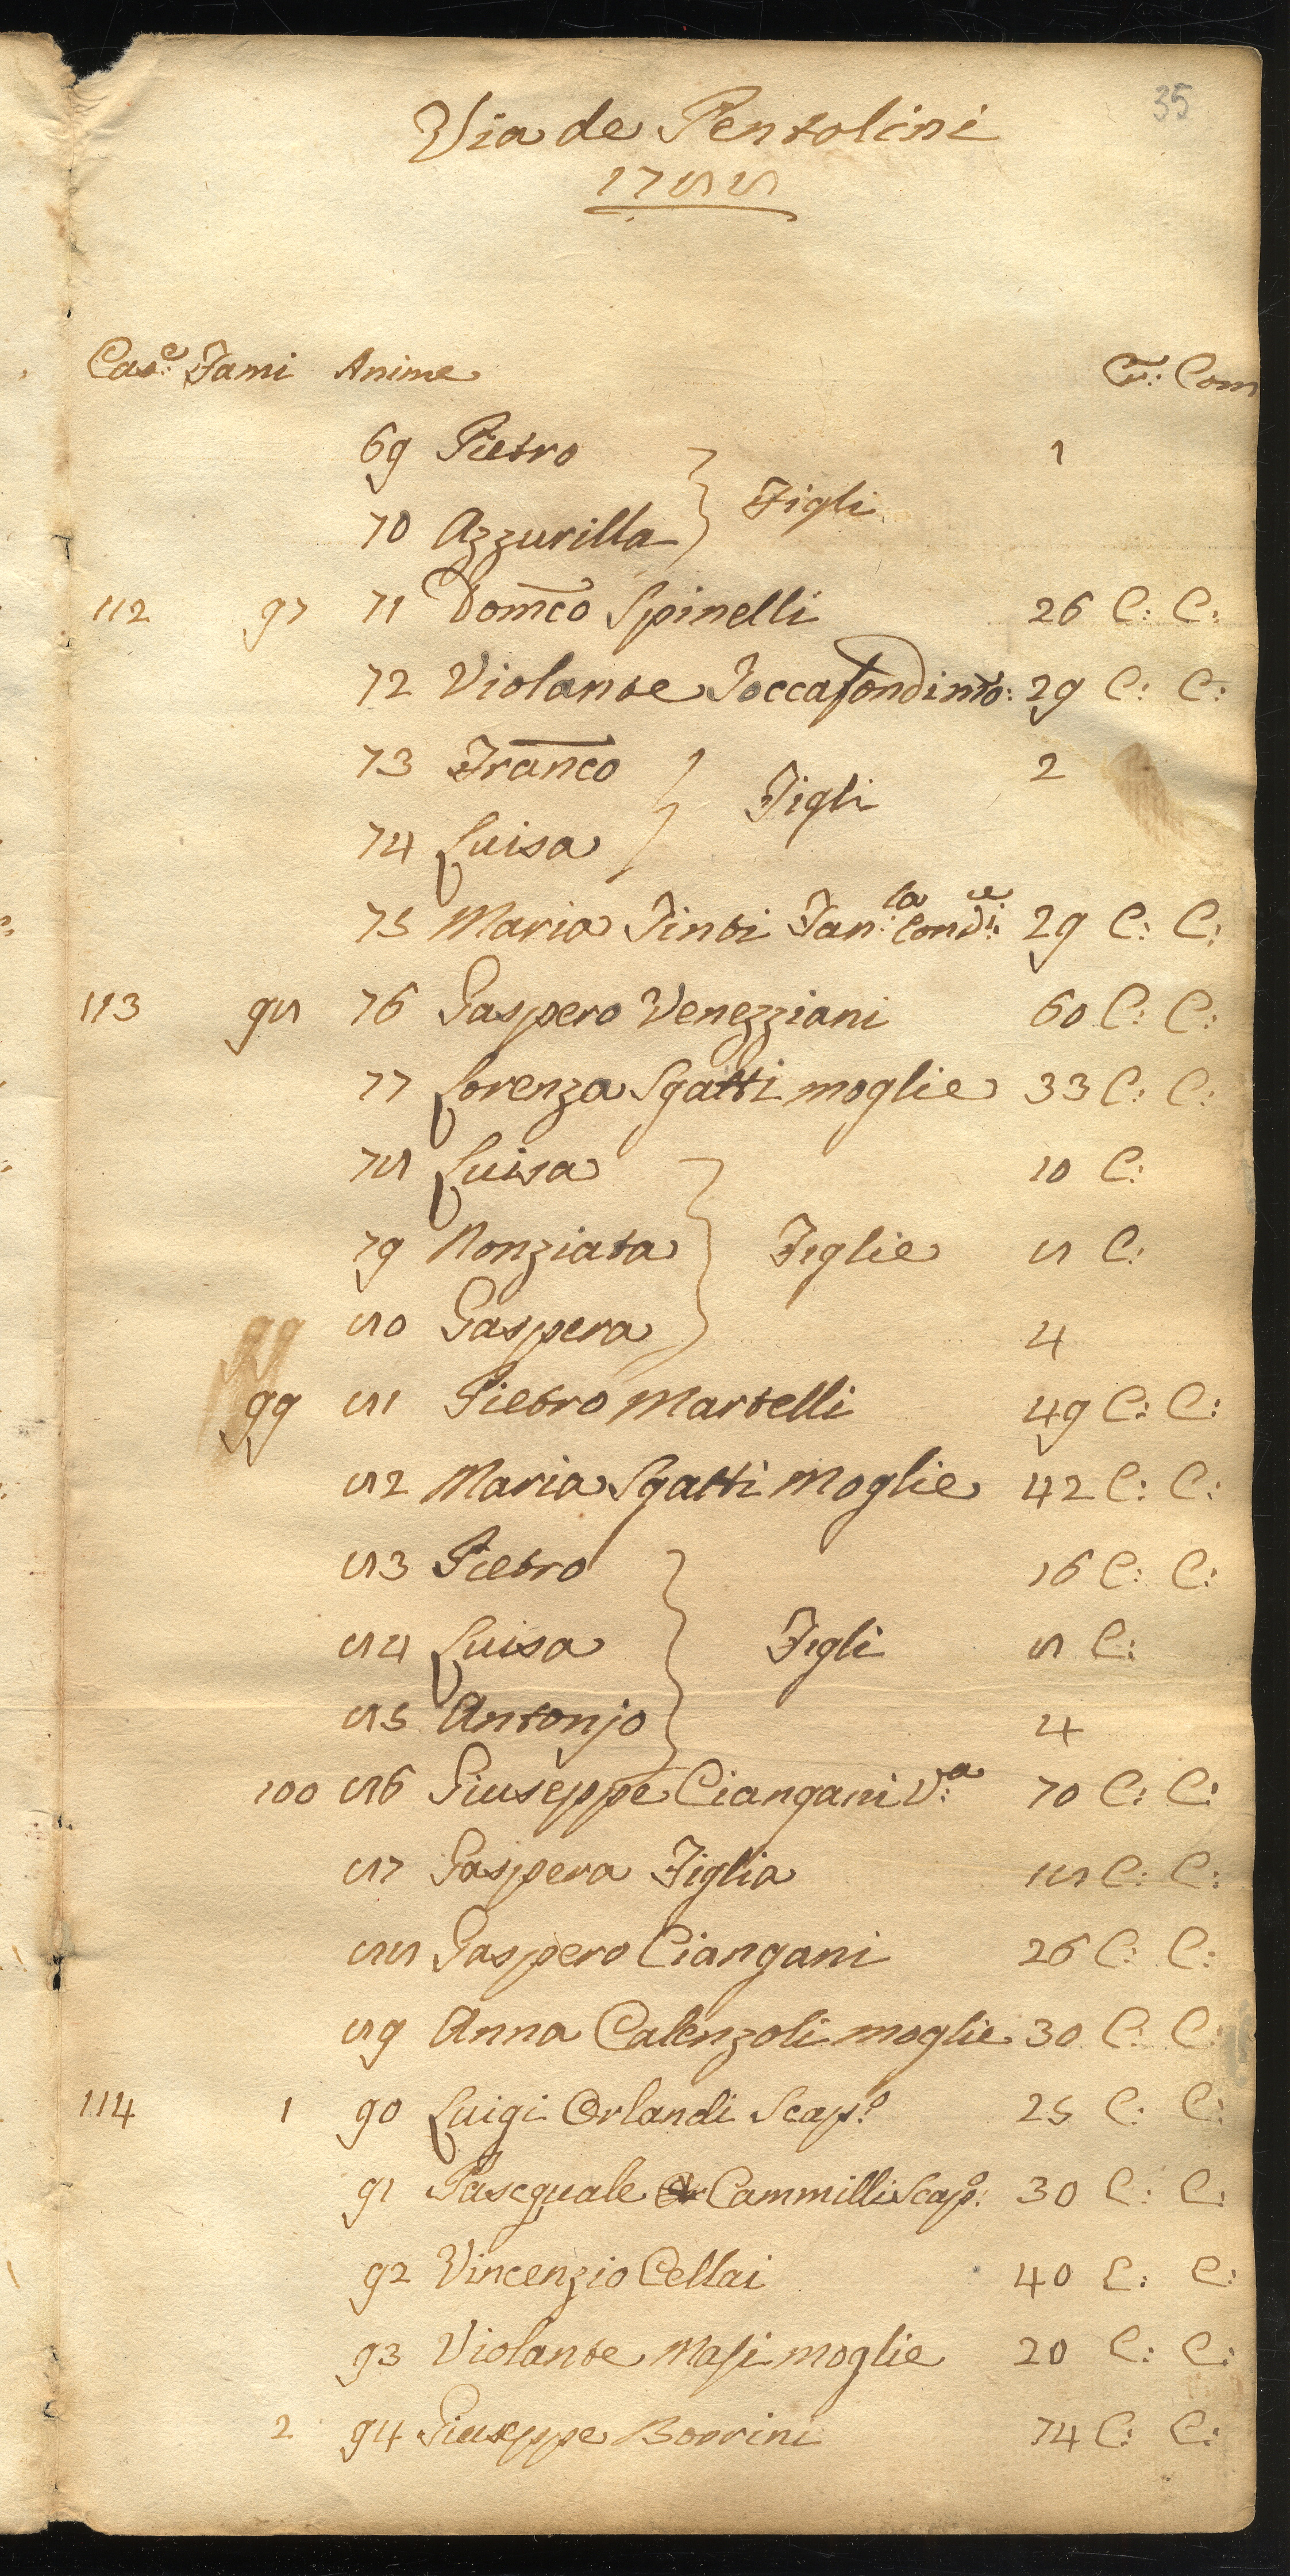 35
Via de Pentolini
1788
Cas:e Fami Anime Cr: Com
69 Pietro 1
Figli
70 Azzurilla
112 97 71 Domco Spinelli 26 C: C:
72 Violante Toccafondi mo: 29 C: C:
73 Franco 2
Figli
74 Luisa
75 Maria Tinti Fan:la Cond:e 29 C: C:
113 98 76 Gaspero Venezziani 60 C: C:
77 Lorenza Sgatti moglie 33 C: C:
78 Luisa 10 C:
79 Nonziata Figlie 8 C:
80 Gaspera 4
99 81 Pietro Martelli 49 C: C:
82 Maria Sgatti Moglie 42 C: C:
83 Pietro 16 C: C:
84 Luisa Figli 8 C:
85 Antonjo 4
100 86 Giuseppe Ciangani V:a 70 C: C:
87 Gaspera Figlia 18 C: C:
88 Gaspero Ciangani 26 C: C:
89 Anna Calenzoli moglie 30 C: C:
114 1 90 Luigi Orlandi Scap:o 25 C: C:
91 Pascquale Cammilli Scapo: 30 C: C:
92 Vincenzio Cellai 40 C: C:
93 Violante Masi moglie 20 C: C:
2 94 Giuseppe Borrini 74 C: C: